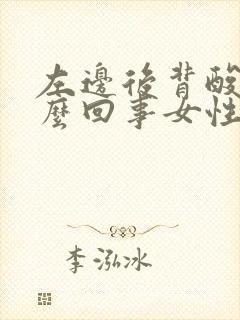 左邊後背酸
麼回事女性
李泓冰